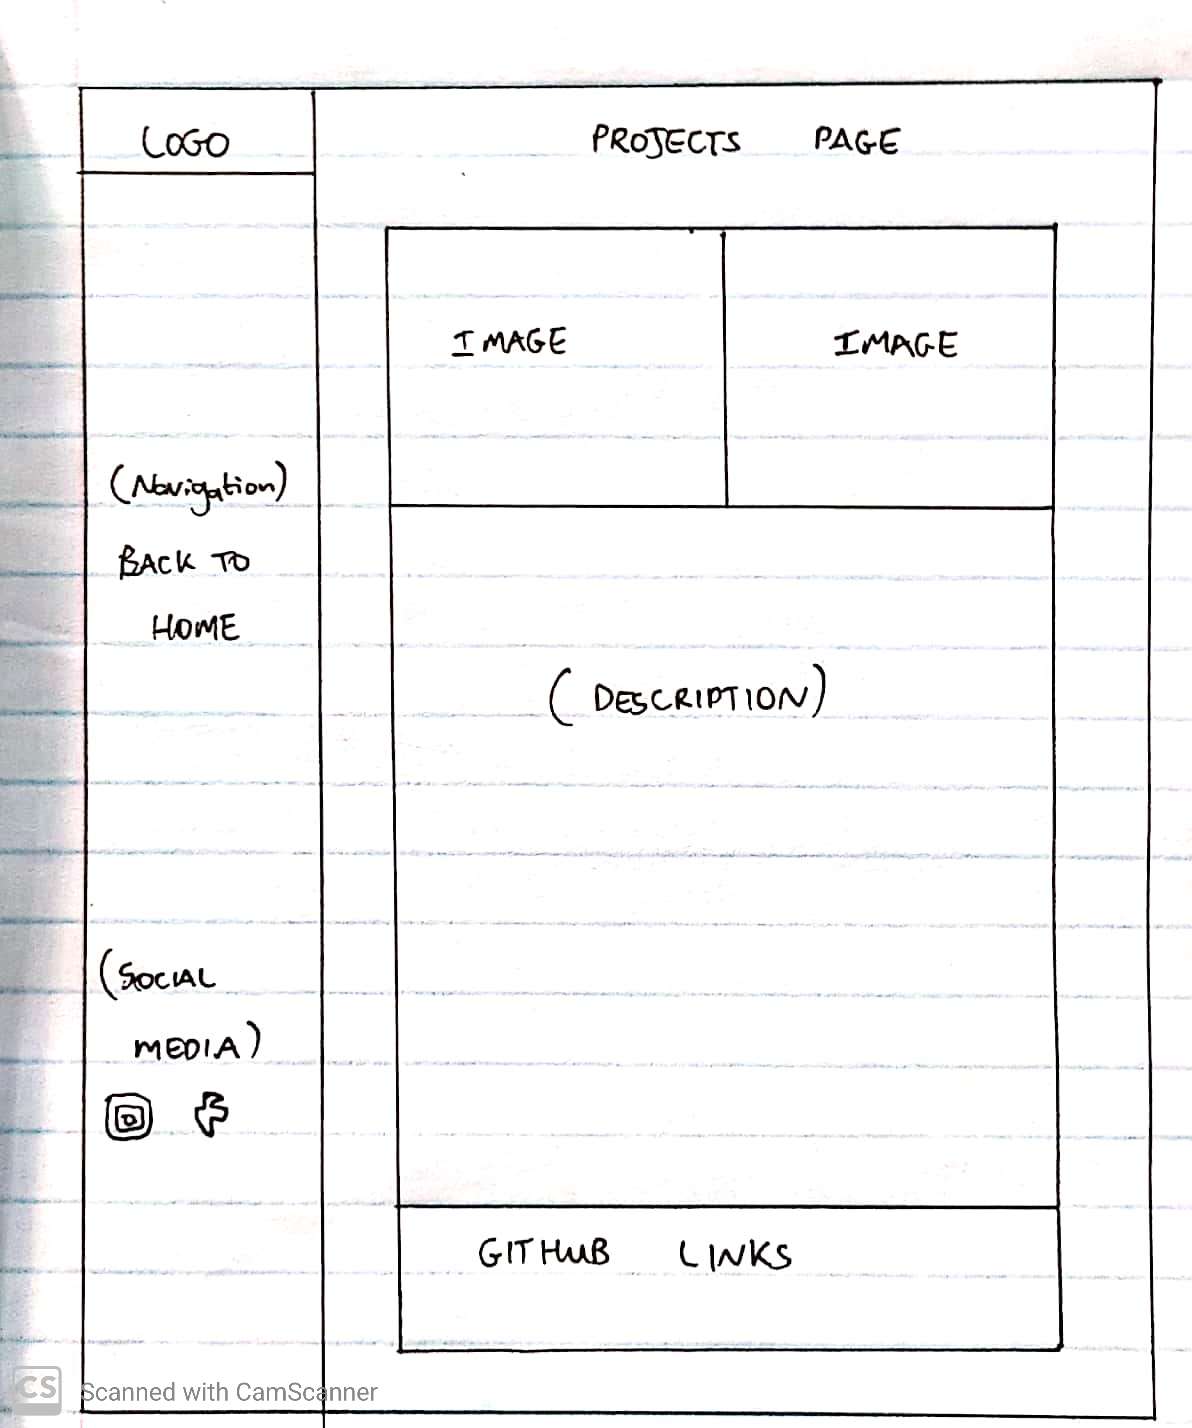 LOGO
PROJECTS PAGE
IMAGE
IMAGE
(Navigation)
BACK TO
HOME
(DESCRIPTION)
(SOCIAL
MEDIA)
GITHUB LINKS
CS Scanned with CamScanner